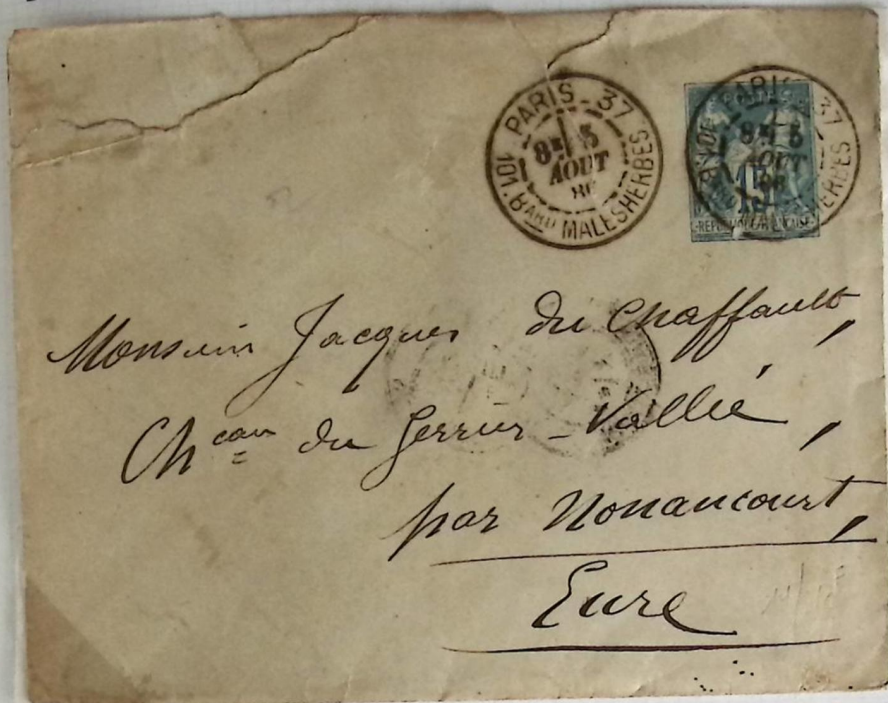 PARIS - 37
8E 5
AOUT
86
101. BARD MALESHERBES
PARIS 37
8E 5
AOUT
15
REPUBLIQUE FRANCAISE
Monsieur Jacques du Chaffault,
Cheau du Gerrier-Vallié,
par Nonancourt,
Eure